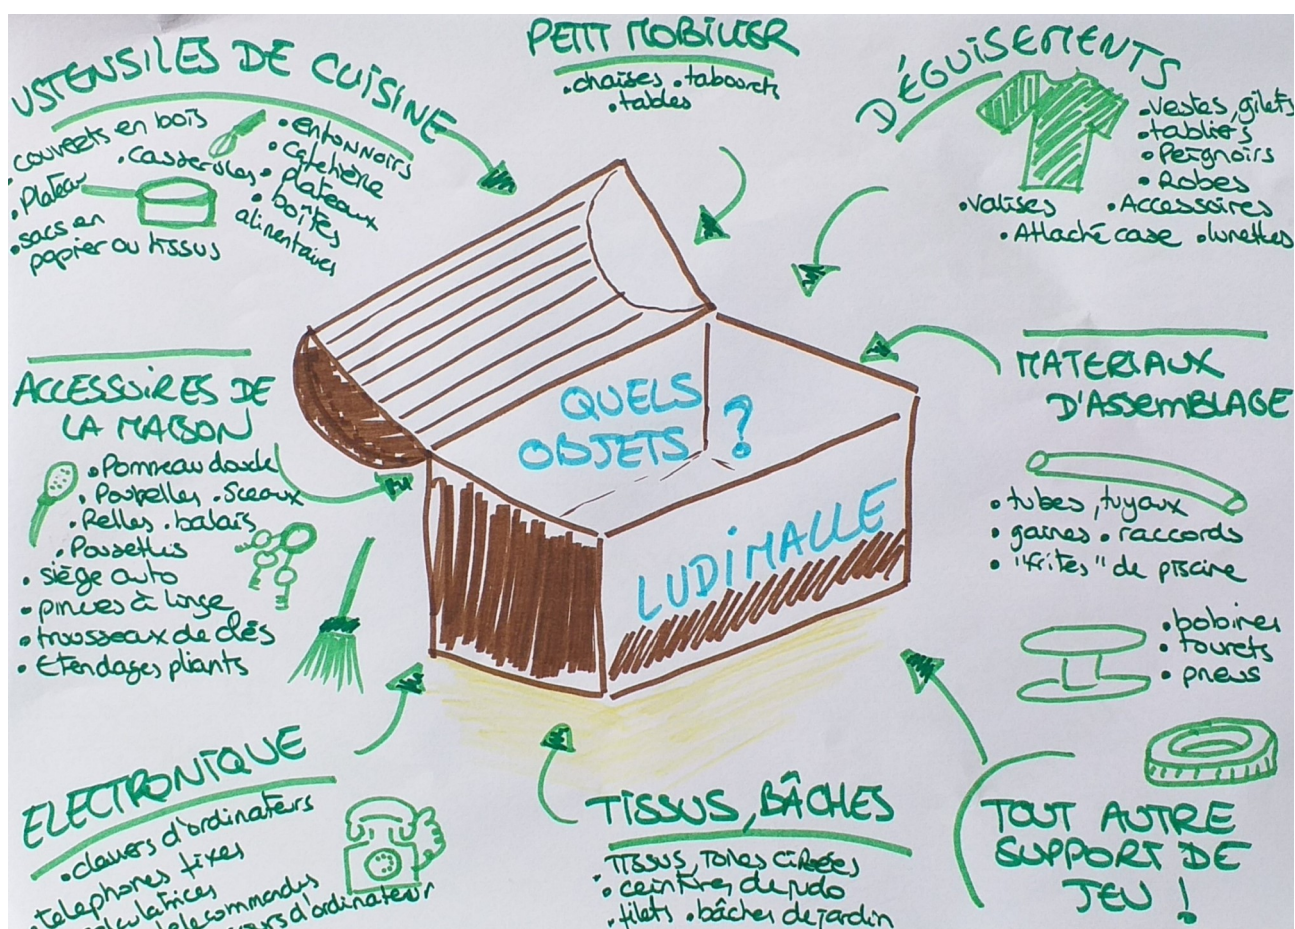 USTENSILES DE CUISINE
couverts en bois
• Casseroles
• Plateau
• sacs en
papier ou tissus
• entonnoirs
• Cafetière
• plateaux
• boîtes
alimentaires
PETIT MOBILIER
• chaises • tabourets
• tables
DÉGUISEMENTS
• vestes, gilets
• tabliers
• Peignoirs
• Robes
• valises • Accessoires
• Attaché case • lunettes
ACCESSOIRES DE
LA MAISON
• Pommeau douche
• Poubelles • Sceaux
• Pelles • balais
• Poussettes
• siège auto
• pinces à linge
• trousseaux de clés
• Etendages pliants
QUELS
OBJETS ?
LUDIMALLE
MATERIAUX
D'ASSEMBLAGE
• tubes, tuyaux
• gaines • raccords
• "frites" de piscine
• bobines
• tourets
• pneus
ELECTRONIQUE
• claviers d'ordinateurs
• telephones fixes
calculatrices
telecommandes
d'ordinateur
TISSUS, BÂCHES
TISSUS, Toiles cirées
• ceintures de judo
• filets • bâches de jardin
TOUT AUTRE
SUPPORT DE
JEU !